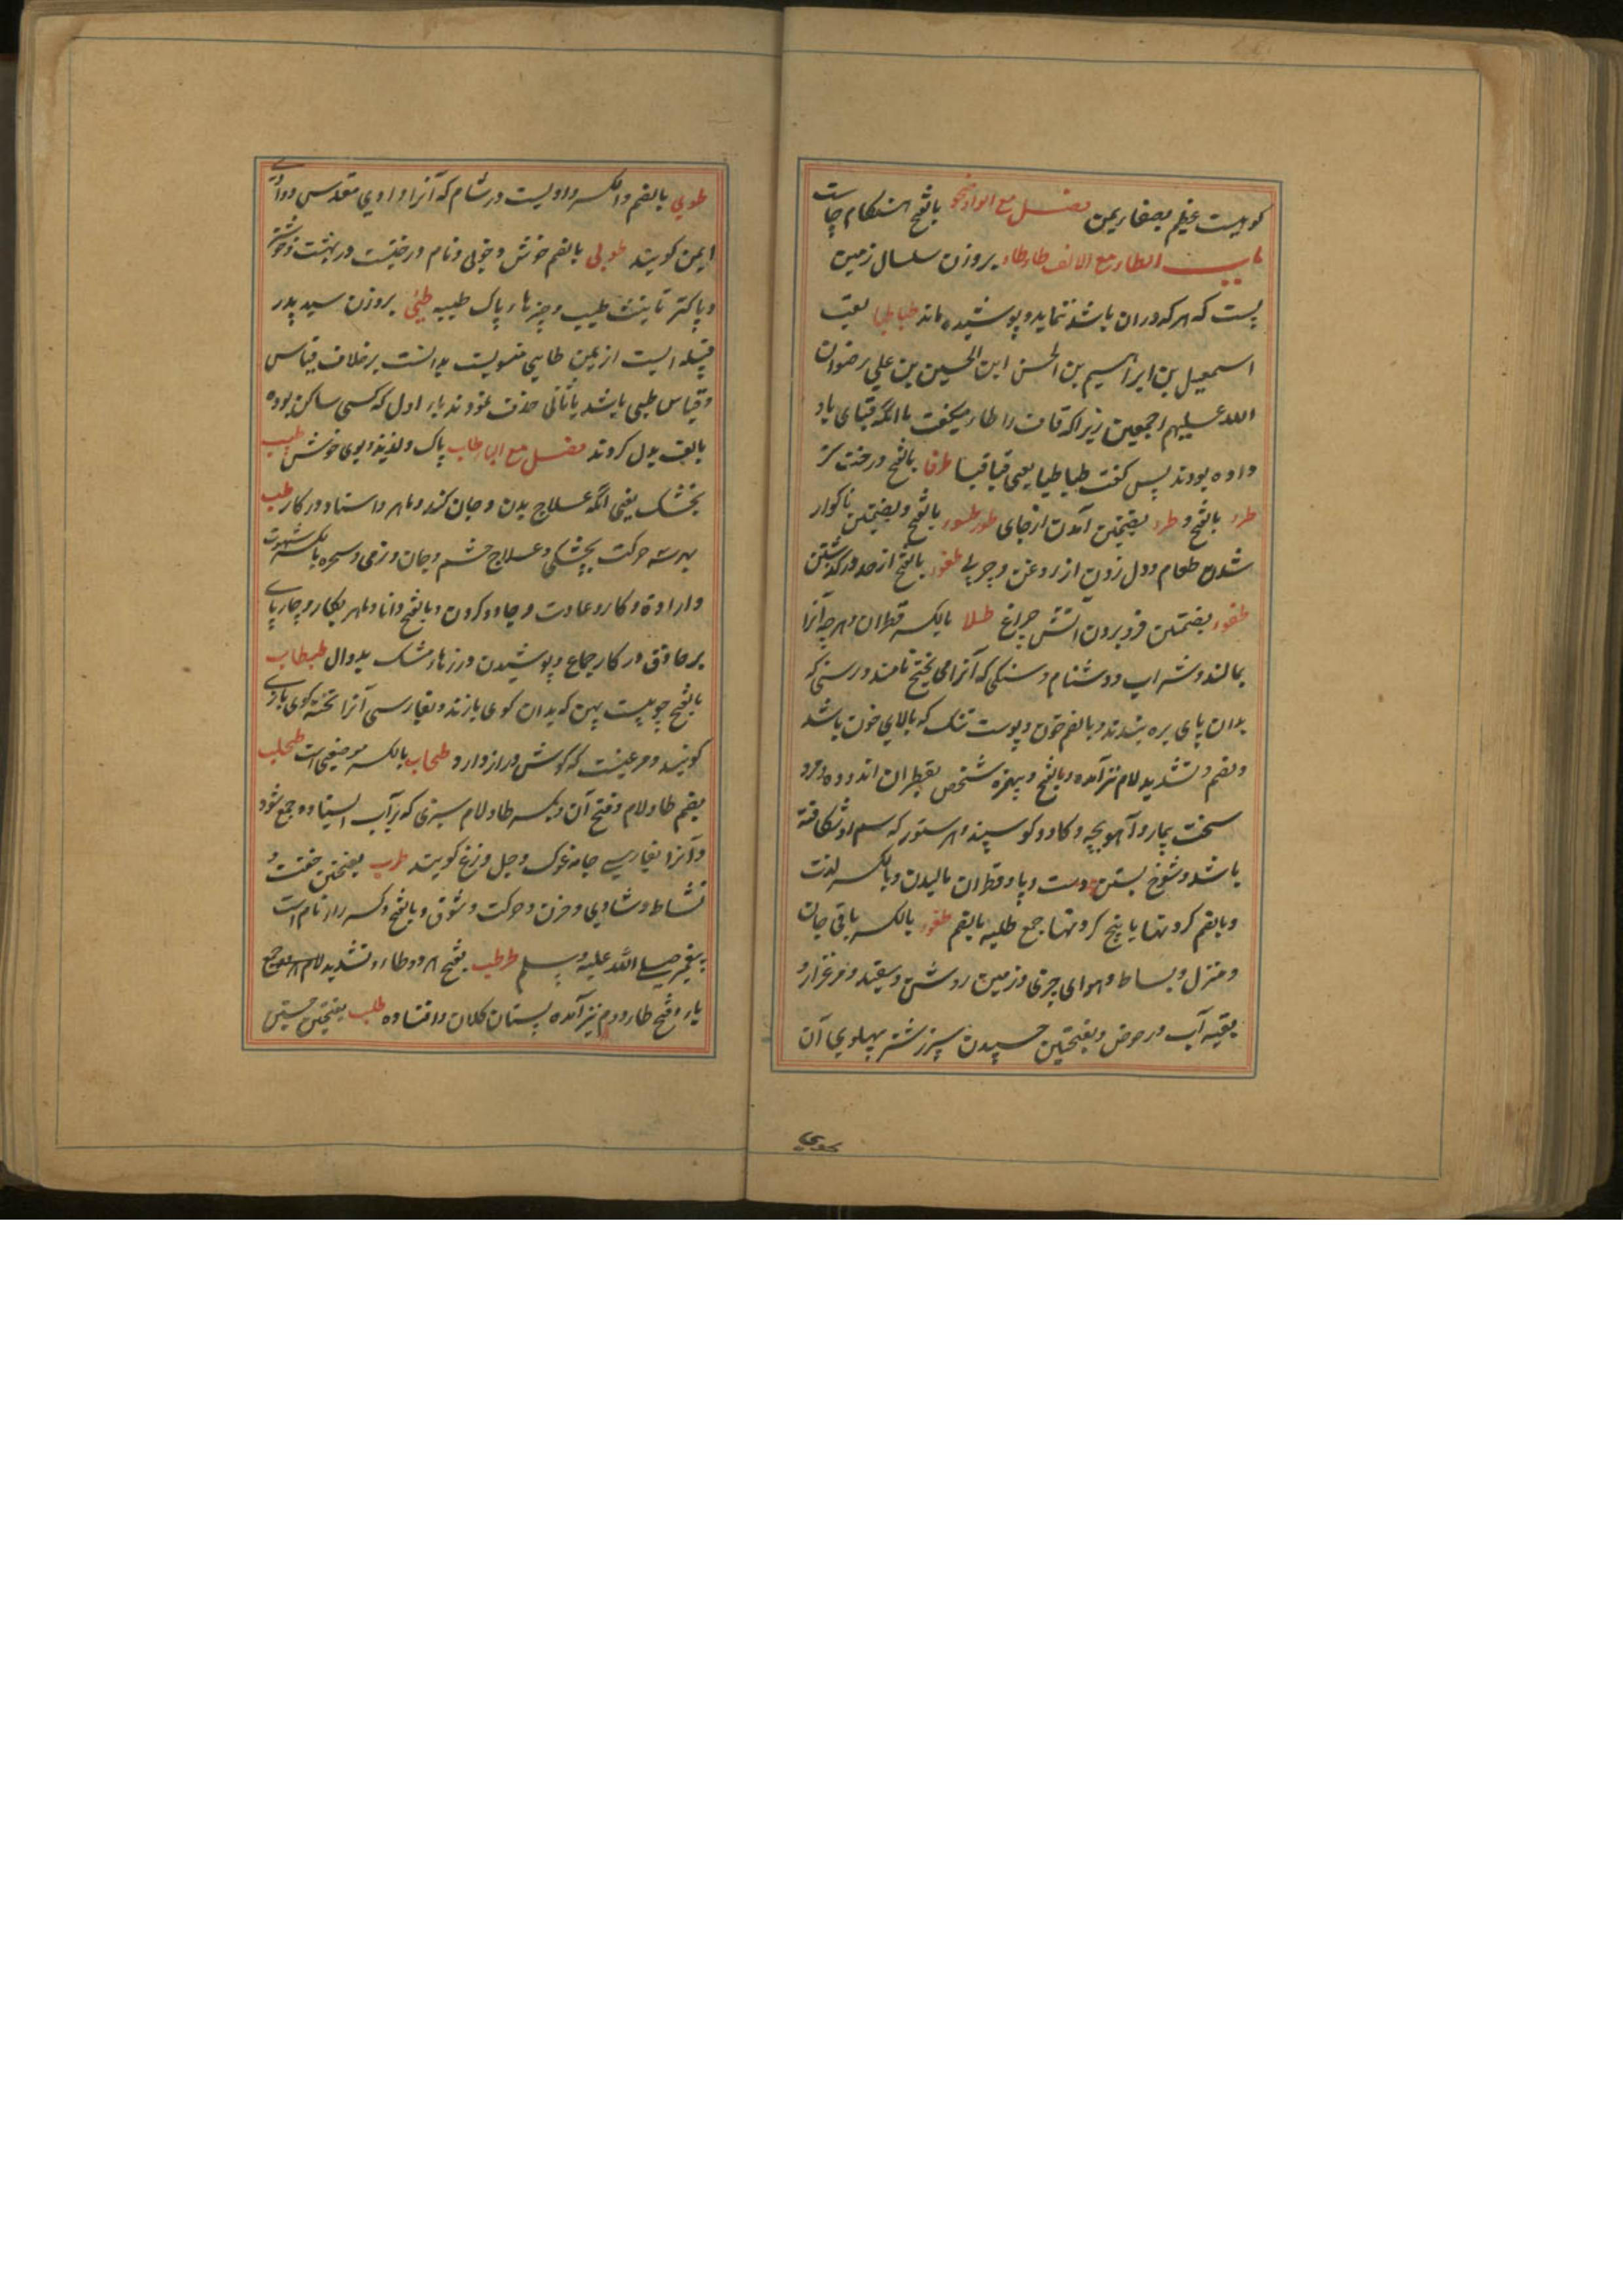 کوهیست عظیم بصغار یمن فصل مع الواو ضحو بالفتح هنگام چاست
باب الطار مع الالف طاطاء بروزن سلسال زمین
پست که هرکه دران باشد ننماید و پوشیده ماند طباطبا لقب
اسمعیل بن ابراهیم بن الحسن ابن الحسین بن علی رضوان
الله علیهم اجمعین زیرا که قاف را طاء میگفت با آنکه قبای یاد
داده بودند پس گفت طباطبا یعنی قباقبا طرفا بالفتح درخت گز
طرء بالفتح و طرء بضمتین آمدن از جای طور طسوء بالفتح و بضمتین ناگوار
شدن طعام و دل زدن از روغن و چربی طفوء بالفتح از حد در گذشتن
طفوء بضمتین فرو بردن آتش چراغ طلا بالکسر قطران و هرچه آنرا
بمالند و شراب و دشنام و سنگی که آنرا می پختج نامند و رسنی که
بدان پای بره بندند و بالضم خون و پوست تنک که بالای خون باشد
و بضم و تشدید لام نیز آمده و بالفتح و بی همزه شخص بقطران اندوده و مرد
سخت بیمار و آهو بچه و گاو و گوسپند و هر ستور که سم او شکافته
باشد و شوخ بستن دست و پا و قطران مالیدن و بالکسر لذت
و بالضم گردنها یا بیخ گردنها جمع طلیه بالضم طفوء بالکسر باقی جان
و منزل و بساط و هوای چرنی و زمین روشن و سفید و مرغزار و
بقیه آب در حوض و بفتحتین چسپیدن سپرز شتر بپهلوی آن
طوی بالضم و الکسر وادیست در شام که آنرا وادی مقدس و وادی
ایمن گویند طوبی بالضم خوش و خوبی و نام درختیست در بهشت و خوشتر
و پاکتر تانیث طیب و چیزهاء پاک طیبه طیئ بروزن سید پدر
قبیله ایست از یمن طایی منسوبست بدانست برخلاف قیاس
و قیاس طیی باشد یا ثانی حذف نمودند یاء اول که کسی ساکن بوده
بالف بدل کردند فصل مع الباء طاب پاک و لذیذ و بوی خوش طبیب
بخشک یعنی آنکه علاج بدن و جان کند و ماهر و استاد در کار طب
بهر سه حرکت پچشکی و علاج جسم و جان و نرمی و سحر و بالکسر شهوت
و اراده و کار و عادت و جادو کردن و بالفتح دانا و ماهر بکار و چارپای
بر حاذق در کار جماع و پوشیدن درزهاء مشک بدوال طبطاب
بالفتح چوبیست پهن که بدان گوی بازند و بفارسی آنرا تخته گوی بازی
گویند و مرغیست که گوش دراز دارد طحاب بالکسر موضعی است طحلب
بضم طا و لام و فتح آن و بکسر طا و لام سبزی که بر آب ایستاده جمع شود
و آنرا بفارسی جامه غوک و جل وزغ گویند طرب بفتحتین خفت و
نشاط و شادی و حزن و حرکت و شوق و بالفتح و کسر را نام است
پیغمبر صلی الله علیه وسلم طرطب بفتح هر دو طاء و تشدید لام هردو جمع
یاء و فتح طاء دوم نیز آمده پستان کلان و افتاده طلب بفتحتین جستن
بحدی